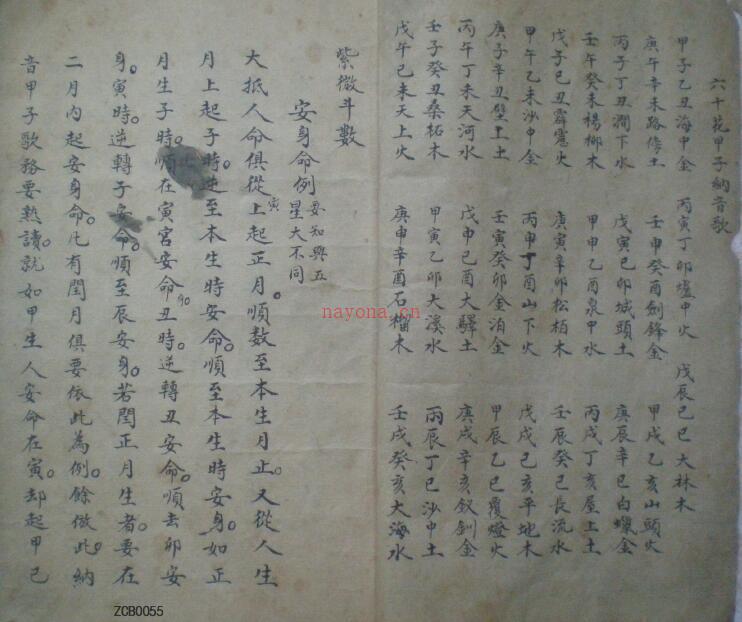 六十花甲子納音歌
甲子乙丑海中金 丙寅丁卯爐中火 戊辰己巳大林木
庚午辛未路傍土 壬申癸酉劍鋒金 甲戌乙亥山頭火
丙子丁丑澗下水 戊寅己卯城頭土 庚辰辛巳白蠟金
壬午癸未楊柳木 甲申乙酉泉中水 丙戌丁亥屋上土
戊子己丑霹靂火 庚寅辛卯松柏木 壬辰癸巳長流水
甲午乙未沙中金 丙申丁酉山下火 戊戌己亥平地木
庚子辛丑壁上土 壬寅癸卯金泊金 甲辰乙巳覆燈火
丙午丁未天河水 戊申己酉大驛土 庚戌辛亥釵釧金
壬子癸丑桑柘木 甲寅乙卯大溪水 丙辰丁巳沙中土
戊午己未天上火 庚申辛酉石榴木 壬戌癸亥大海水
紫微斗數
安身命例 要知與五星大不同
大抵人命俱從寅上起正月。順数至本生月止。又從人生
月上起子時。逆至本生時安命。順至本生時安身。如正
月生子時。順在寅宮安命。如丑時。逆轉丑安命。順去卯安
身。寅時。逆轉子安命。順至辰安身。若閏正月生者。要在
二月內起安身命。凡有閏月俱要依此為例。餘倣此。納
音甲子歌務要熟讀。就如甲生人安命在寅。却起甲己
nayona.cn
ZCB0055